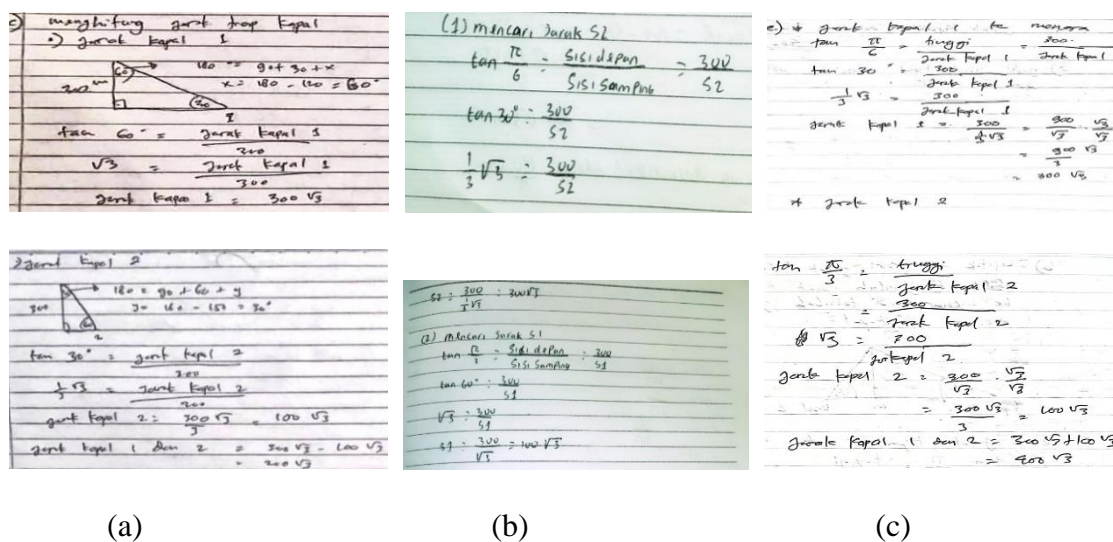 c) menghitung jarak tiap kapal
•) jarak kapal 1
60
180 = 90 + 30 + x
x = 180 - 120 = 60°
300 m
30
1
tan 60° = jarak kapal 1 / 300
√3 = jarak kapal 1 / 300
jarak kapal 1 = 300 √3
•) jarak kapal 2
180 = 90 + 60 + y
y = 180 - 150 = 30°
300
60
2
tan 30° = jarak kapal 2 / 300
1/3 √3 = jarak kapal 2 / 300
jarak kapal 2 = 300 √3 / 3 = 100 √3
jarak kapal 1 dan 2 = 300 √3 - 100 √3
= 200 √3
(a)
(1) mencari Jarak S2
tan π/6 = sisi depan / sisi samping = 300 / S2
tan 30° = 300 / S2
1/3 √3 = 300 / S2
S2 = 300 / 1/3 √3 = 300√3
(2) mencari Jarak S1
tan π/3 = sisi depan / sisi samping = 300 / S1
tan 60° = 300 / S1
√3 = 300 / S1
S1 = 300 / √3 = 100 √3
(b)
c) * jarak kapal 1 ke menara
tan π/6 = tinggi / jarak kapal 1 = 300 / jarak kapal 1
tan 30° = 300 / jarak kapal 1
1/3 √3 = 300 / jarak kapal 1
jarak kapal 1 = 300 / 1/3 √3 = 900 / √3 · √3 / √3
= 900 √3 / 3
= 300 √3
* jarak kapal 2
tan π/3 = tinggi / jarak kapal 2
= 300 / jarak kapal 2
√3 = 300 / jarkapal 2
jarak kapal 2 = 300 / √3 · √3 / √3
= 300 √3 / 3 = 100 √3
Jarak kapal 1 dan 2 = 300 √3 + 100 √3
= 400 √3
(c)